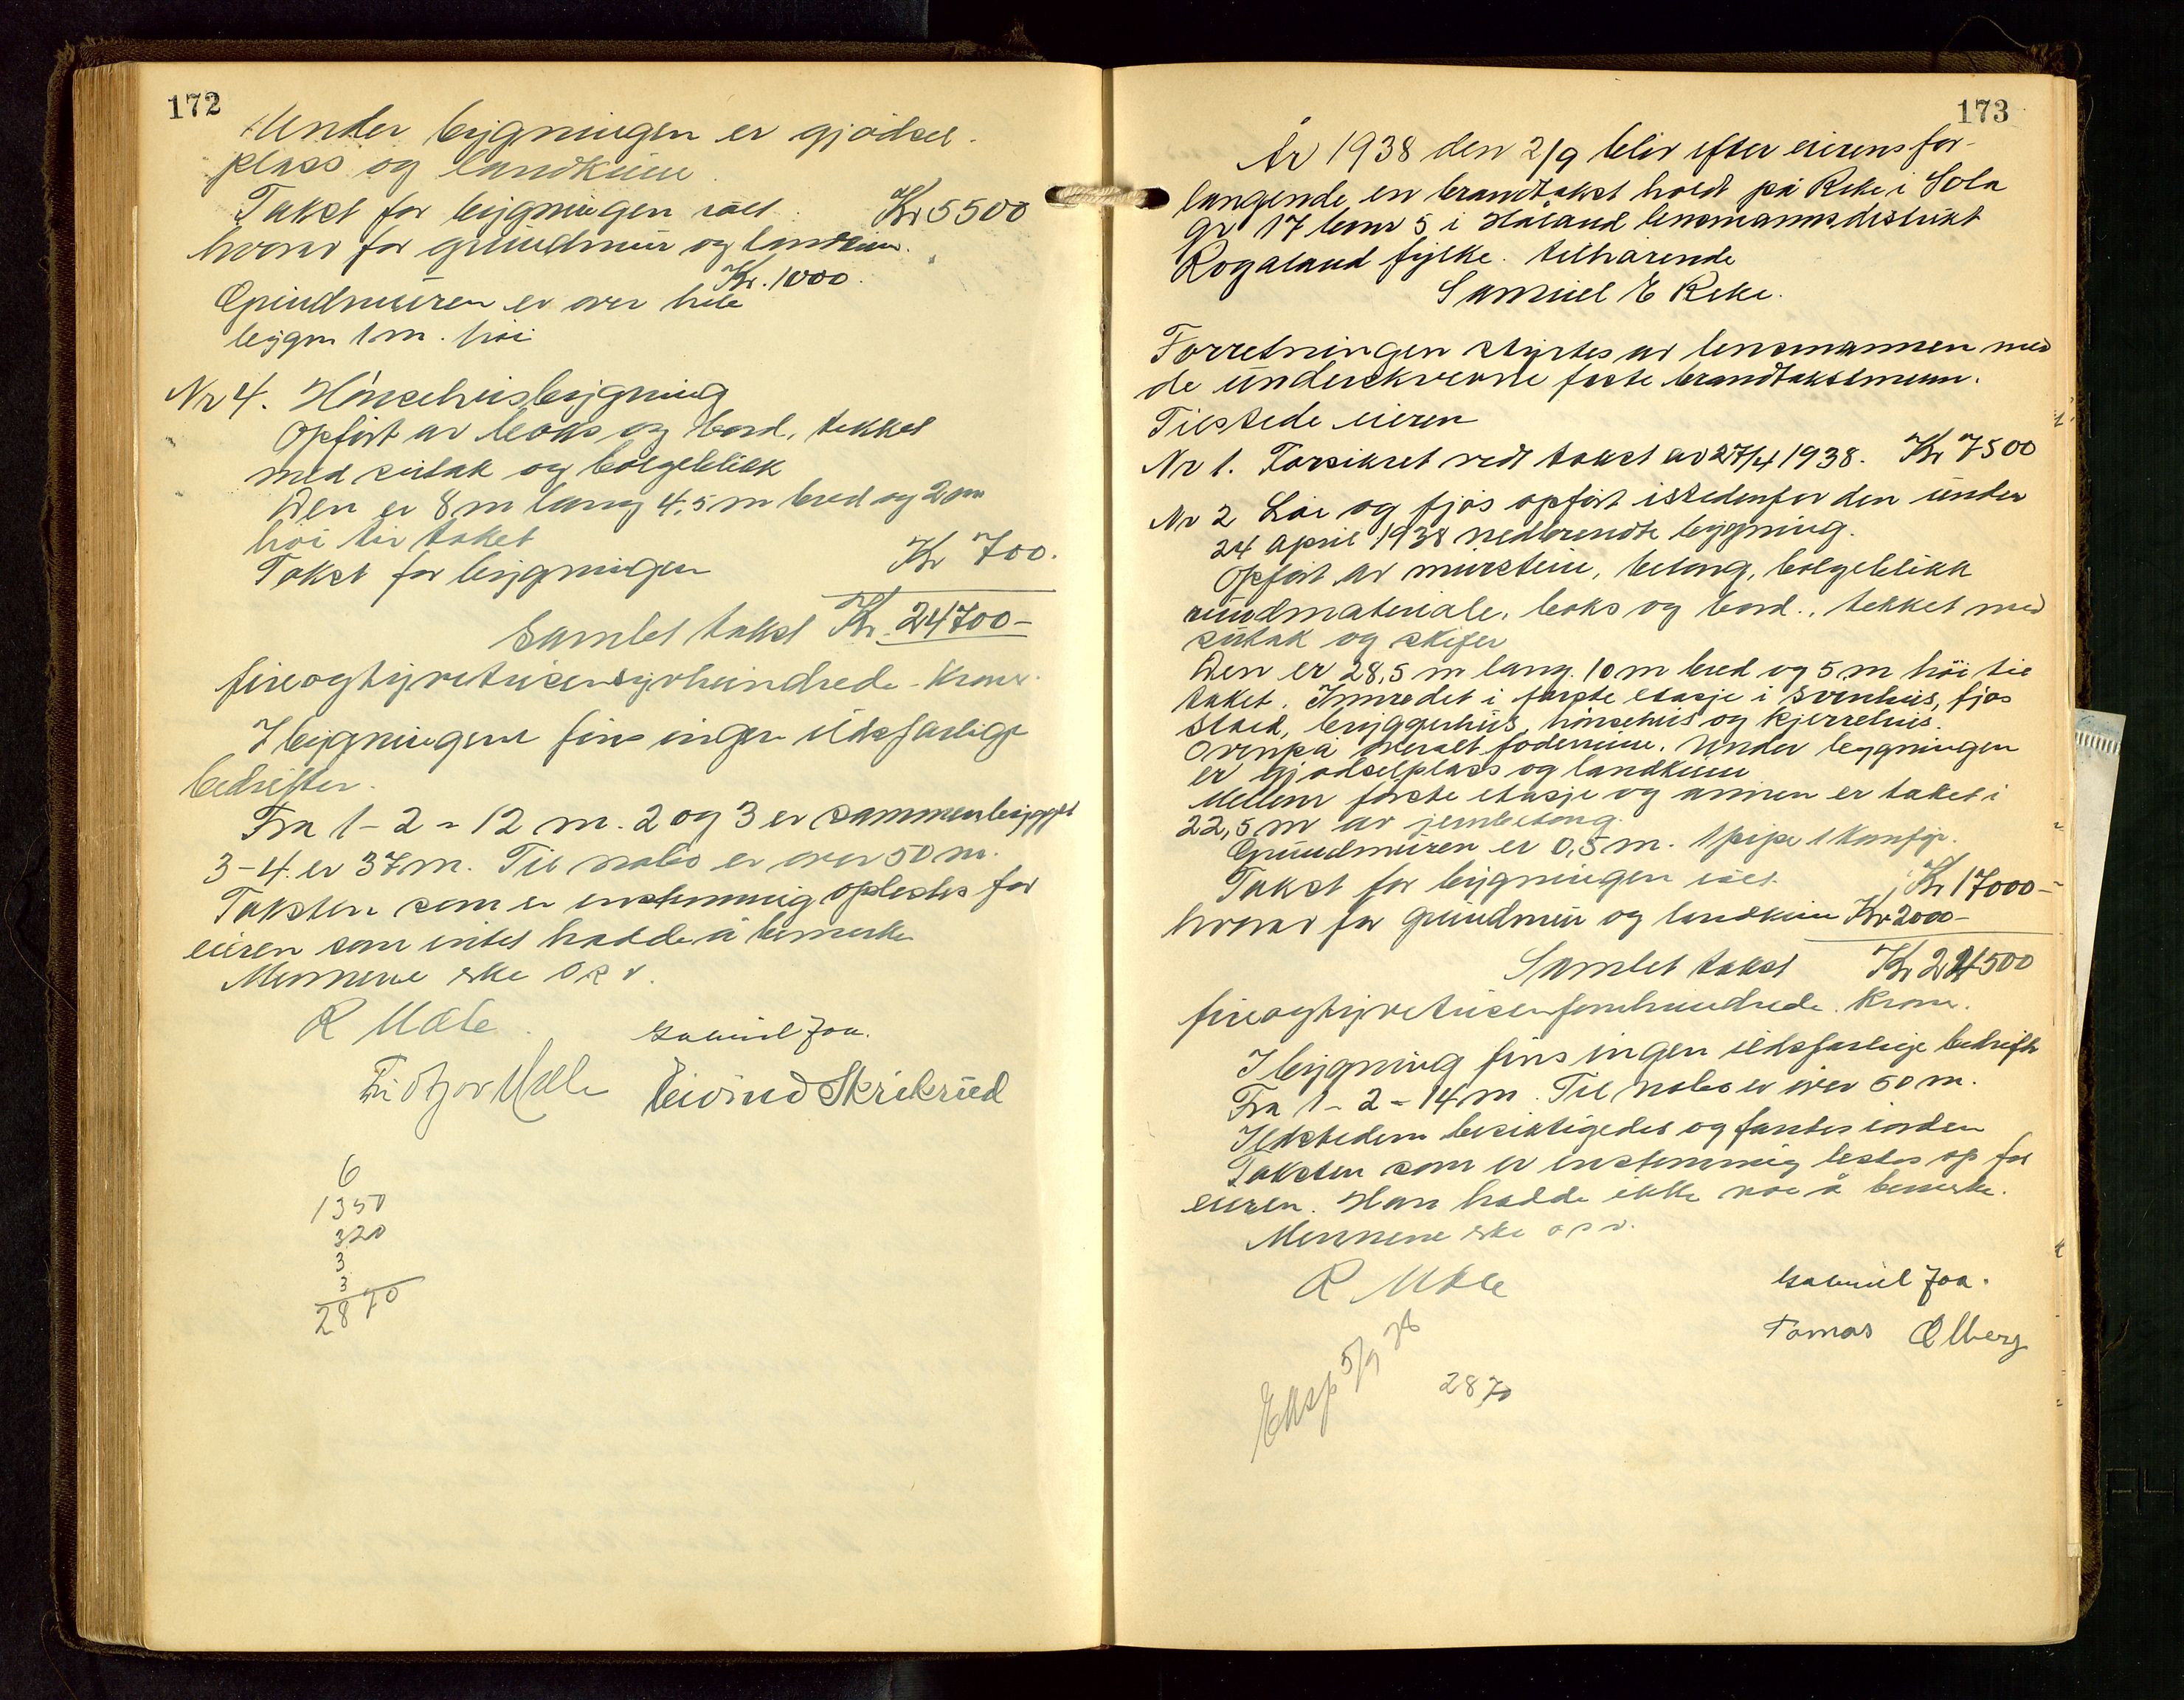 172
Under bygningen er gjødsel-
plass og landkum
Takst for bygningen iøet Kr 5500
hvorav for grundmur og landkum.
Kr. 1000.
Grundmuren er over hele
bygn 1 m. høi
Nr 4. Hønsehusbygning
Opført av boks og bord, tekket
med sutak og bølgeblikk
Den er 8 m lang 4,5 m bred og 2 m
høi til taket
Takst for bygningen Kr 700.
Samlet takst Kr. 24700-
fireogtyvetusensyvhundrede - Kroner.
I bygningene fins ingen ildsfarlige
bedrifter.
Fra 1-2 = 12 m. 2 og 3 er sammenbygget
3-4 er 37 m. Til nabo er over 50 m.
Taksten som er enstemmig oplestes for
eieren som intet hadde å bemerke
Mennene ske o s v.
R Mæle Gabriel Joa.
Fridtjov Mæle Eivind Skrikrud
6
1350
320
3
3
2870
173
År 1938 den 2/9 blev efter eierens for-
langende en brandtakst holdt på Reke i Sola
gr 17 bnr 5 i Håland lensmannsdistrikt
Rogaland fylke. tilhørende
Samuel E Reke.
Forretningen styrtes av lensmannen med
de underskrevne faste brandtakstmenn.
Tilstede eieren
Nr 1. Forsikret ved takst av 27/4 1938. Kr 7500
Nr 2 Løe og fjøs opført istedenfor den under
24 april 1938 nedbrendte bygning.
Opført av murstein, betong, bølgeblikk
rundmateriale, boks og bord., tekket med
sutak og skifer
Den er 28,5 m lang. 10 m bred og 5 m høi til
taket. Innredet i første etasje i svinhus, fjøs
stald, bryggerhus, hønsehus og kjerrehus.
Ovenpå overalt foderrum. Under bygningen
er gjødselplass og landkum
Mellem første etasje og annen er taket i
22,5 m av jernbetong.
Grundmuren er 0,5 m. 1 pipe 1 komfyr.
Takst for bygningen iøet. Kr 17000-
hvorav for grundmur og landkum Kr 2000-
Samlet takst Kr 24500
fireogtyvetusenfemhundrede. Kroner.
I bygning fins ingen ildsfarlige bedrifter
Fra 1-2 = 14 m. Til nabo er over 50 m.
Ildstedene besiktigedes og fantes iorden
Taksten som er enstemmig lestes op for
eieren. Han hadde ikke noe å bemerke.
Mennene ske o s v.
R Mæle Gabriel Joa.
Tomas Ølberg
Eksp 5/9 38
2870